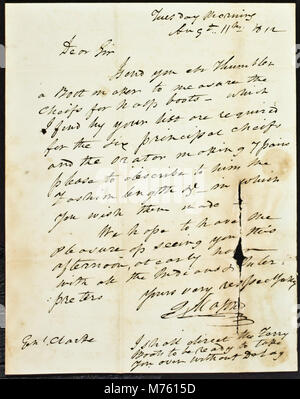 Tuesday Morning
Augt. 11th. 1812
Dear Sir
I send you Mr Thumbler
a Boot maker to measure the
chiefs for half boots - which
I find by your list are required
for the six principal chiefs
and the orator making 7 pairs
please to describe to him the
fashion length &c in which
you wish them made
We hope to have the
pleasure of seeing you this
afternoon at early hour
with all the Indians & Inter
preters
Yours very respectfully
Genl. Clarke
I shall direct the Ferry
Boats to be ready to take
you over without Delay
alamy
Image ID: W7615D
www.alamy.com